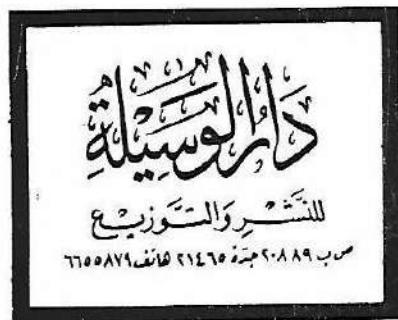 دَارُ الوَسِيلَةِ
للنَّشْرِ وَالتَّوزيع
ص ب ٢٠٨٨٩ جدة ٢١٤٦٥ هاتف ٦٦٥٥٨٧٩